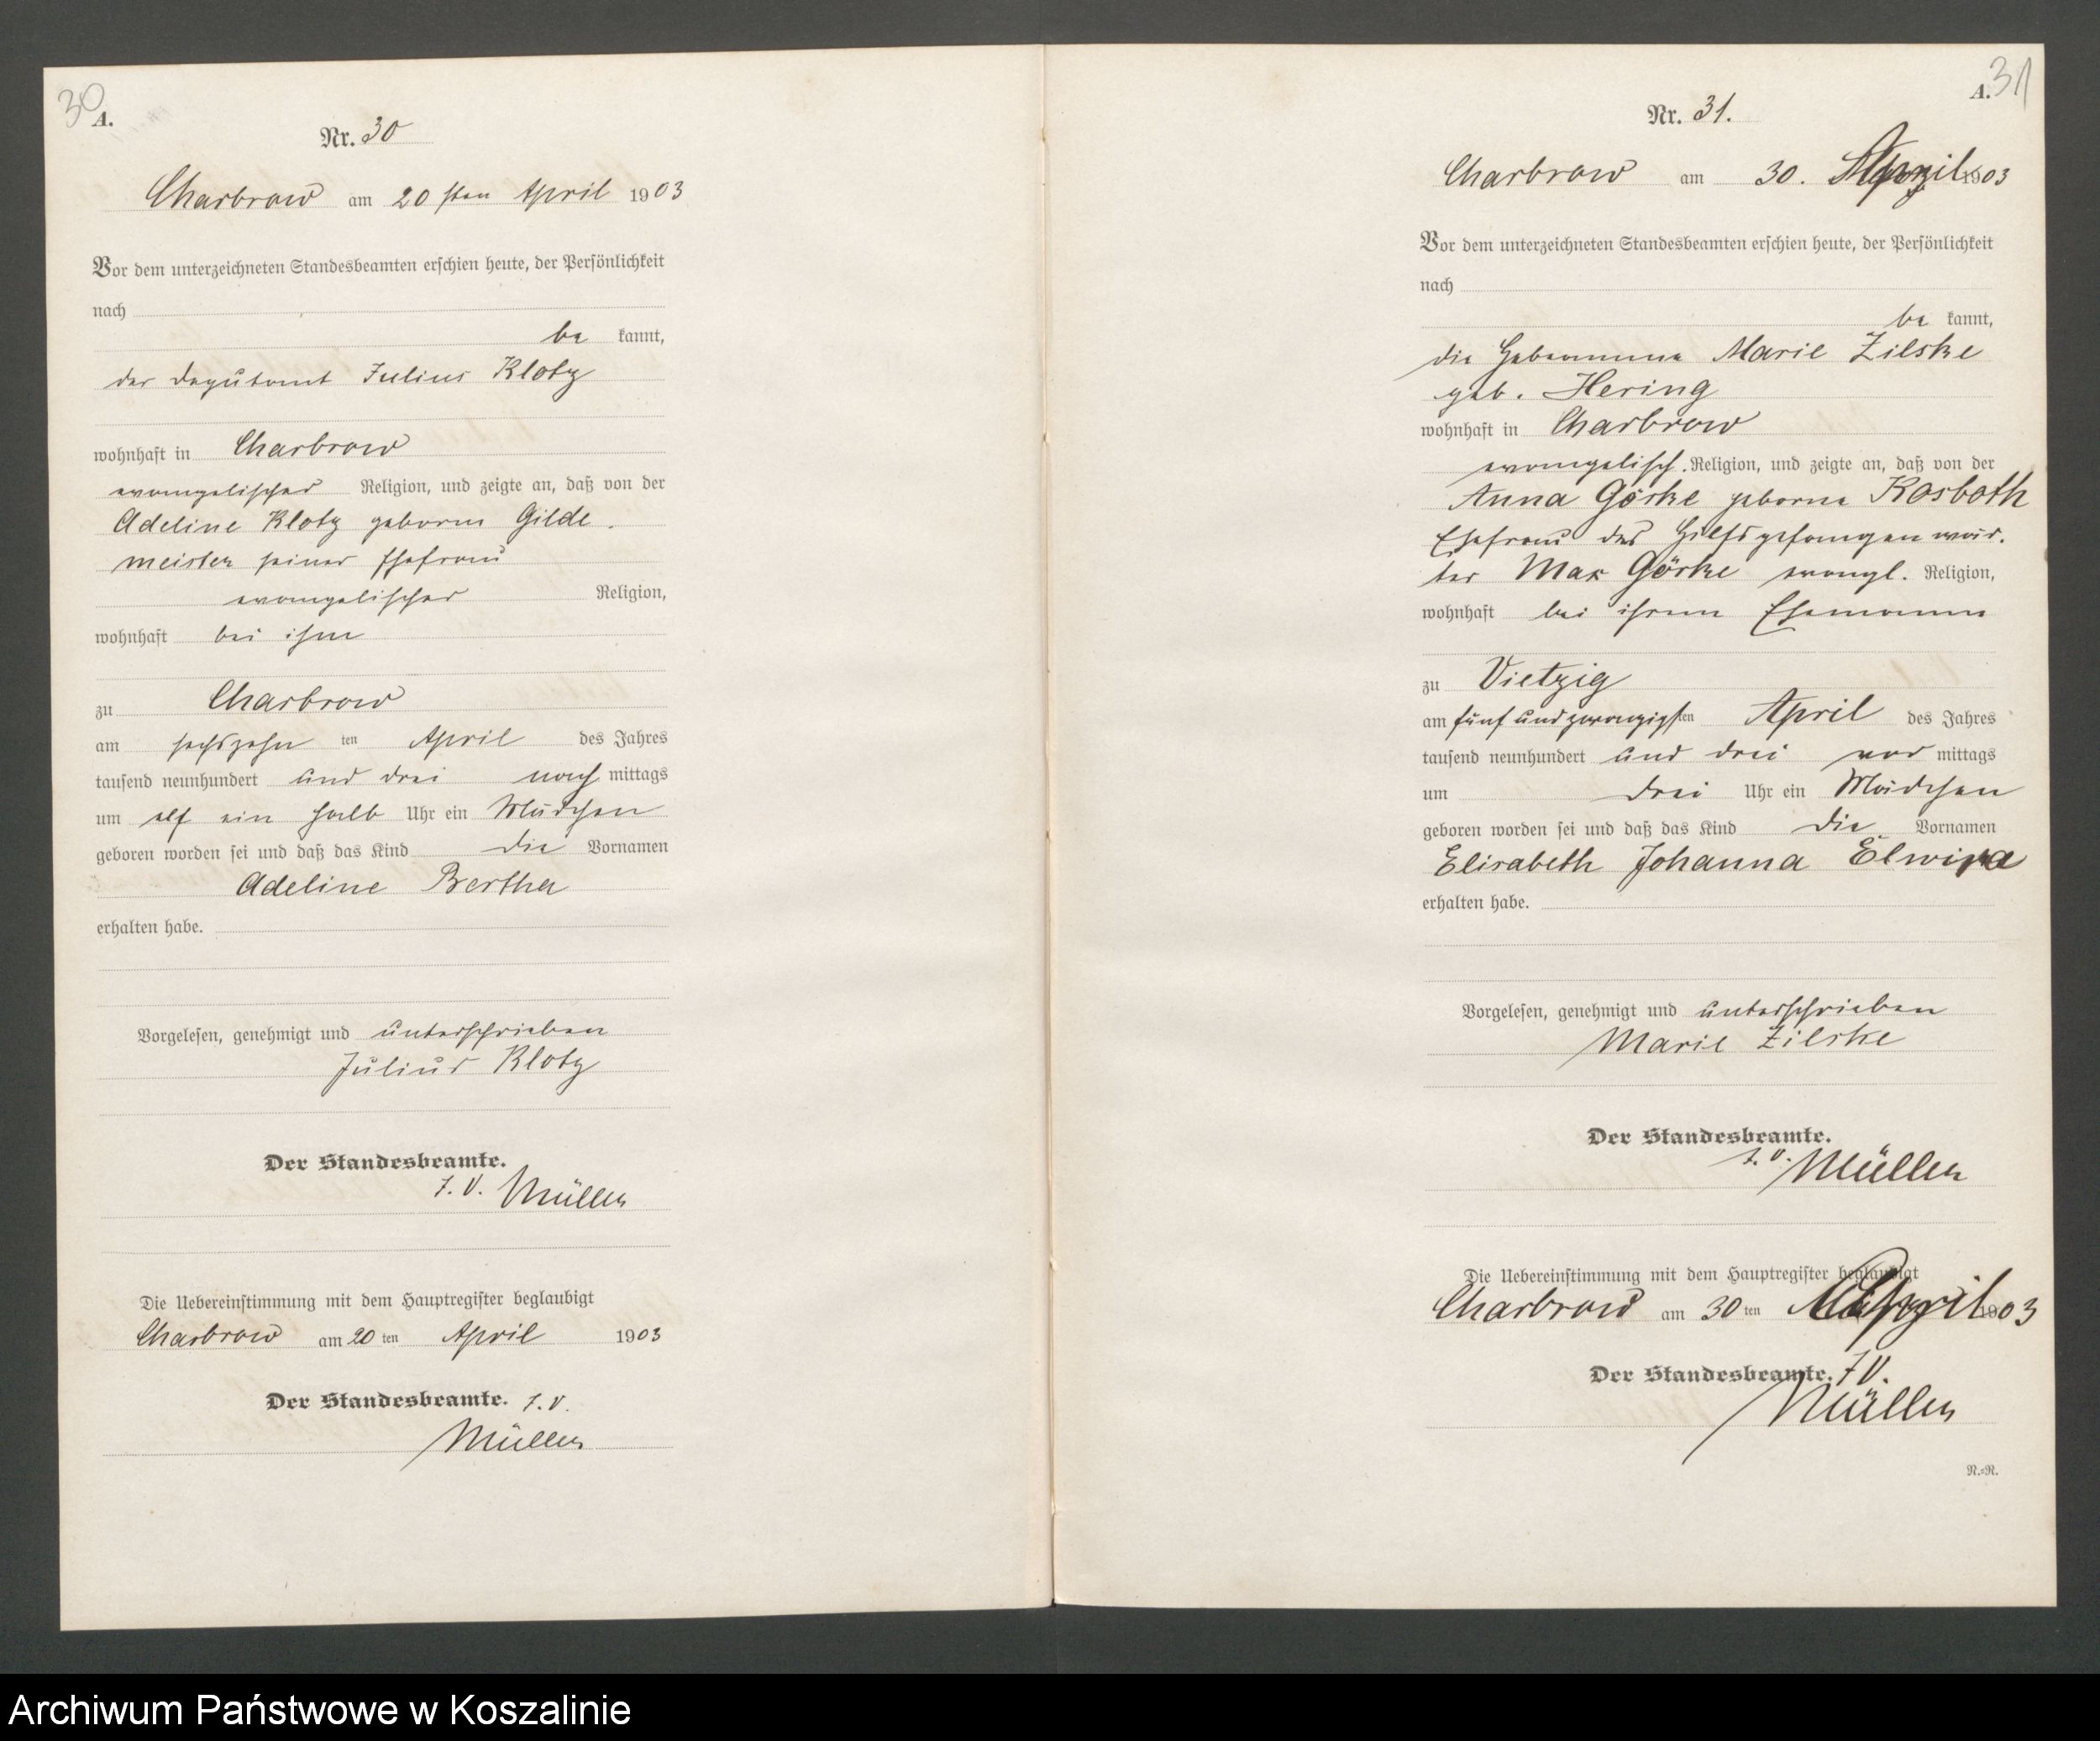 30
A.
Nr. 30
Charbrow am 20 sten April 1903
Vor dem unterzeichneten Standesbeamten erschien heute, der Persönlichkeit
nach
be kannt,
der Deputant Julius Klotz
wohnhaft in Charbrow
evangelischer Religion, und zeigte an, daß von der
Adeline Klotz geborne Gilde-
meister seiner Ehefrau
evangelischer Religion,
wohnhaft bei ihm
zu Charbrow
am sechszehn ten April des Jahres
tausend neunhundert und drei nach mittags
um elf ein halb Uhr ein Mädchen
geboren worden sei und daß das Kind die Vornamen
Adeline Bertha
erhalten habe.
Vorgelesen, genehmigt und unterschrieben
Julius Klotz
Der Standesbeamte.
I. V. Müller
Die Uebereinstimmung mit dem Hauptregister beglaubigt
Charbrow am 20 ten April 1903
Der Standesbeamte. I. V.
Müller
31
A.
Nr. 31.
Charbrow am 30. April 1903
Vor dem unterzeichneten Standesbeamten erschien heute, der Persönlichkeit
nach
be kannt,
die Hebeamme Marie Zilske
geb. Hering
wohnhaft in Charbrow
evangelisch. Religion, und zeigte an, daß von der
Anna Görke geborne Kosboth
Ehefrau des Hilfsgefangenwär-
ter Max Görke evangl. Religion,
wohnhaft bei ihrem Ehemanne
zu Vietzig
am fünf und zwanzigsten April des Jahres
tausend neunhundert und drei vor mittags
um drei Uhr ein Mädchen
geboren worden sei und daß das Kind die Vornamen
Elisabeth Johanna Elwira
erhalten habe.
Vorgelesen, genehmigt und unterschrieben
Marie Zilske
Der Standesbeamte.
I. V. Müller
Die Uebereinstimmung mit dem Hauptregister beglaubigt
Charbrow am 30 ten April 1903
Der Standesbeamte. I V.
Müller
N.=N.
Archiwum Państwowe w Koszalinie